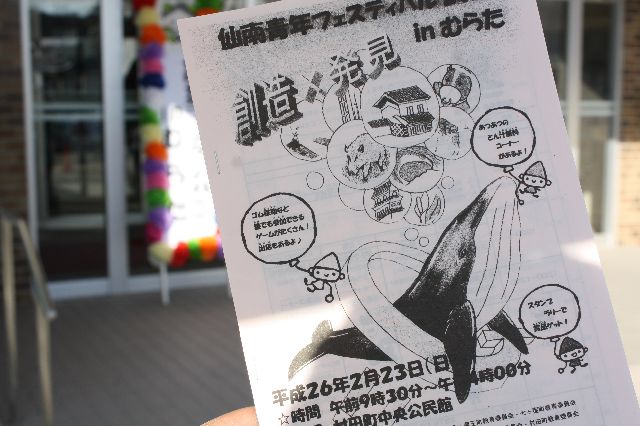 仙南青年フェスティバル
in むらた
創造×発見
あつあつの
とん汁無料
コーナー
があるよ！
ゴム版画など
誰でも参加できる
ゲームがたくさん！
出店もあるよ♪
スタンプ
ラリーで
景品ゲット！
平成26年2月23日(日)
☆時間 午前9時30分～午 時00分
村田町中央公民館
町教育委員会・七ヶ宿町教育委員会
村田町教育委員会